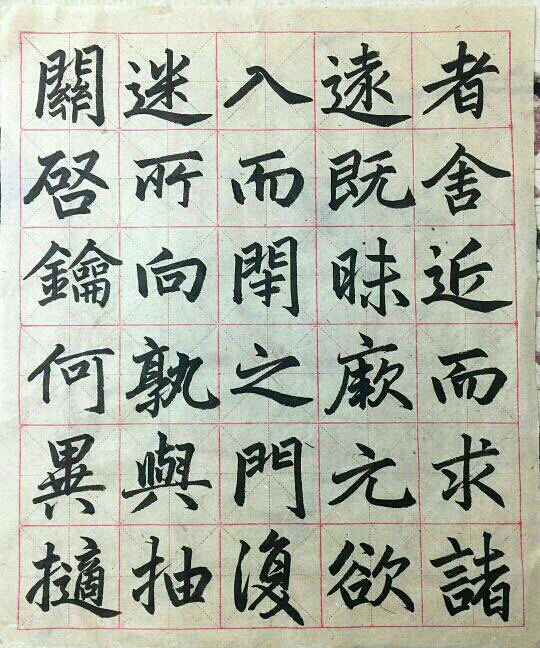 者舍近而求諸
遠既昧厥元欲
入而閇之門復
迷所向孰與抽
關啓鑰何異擿